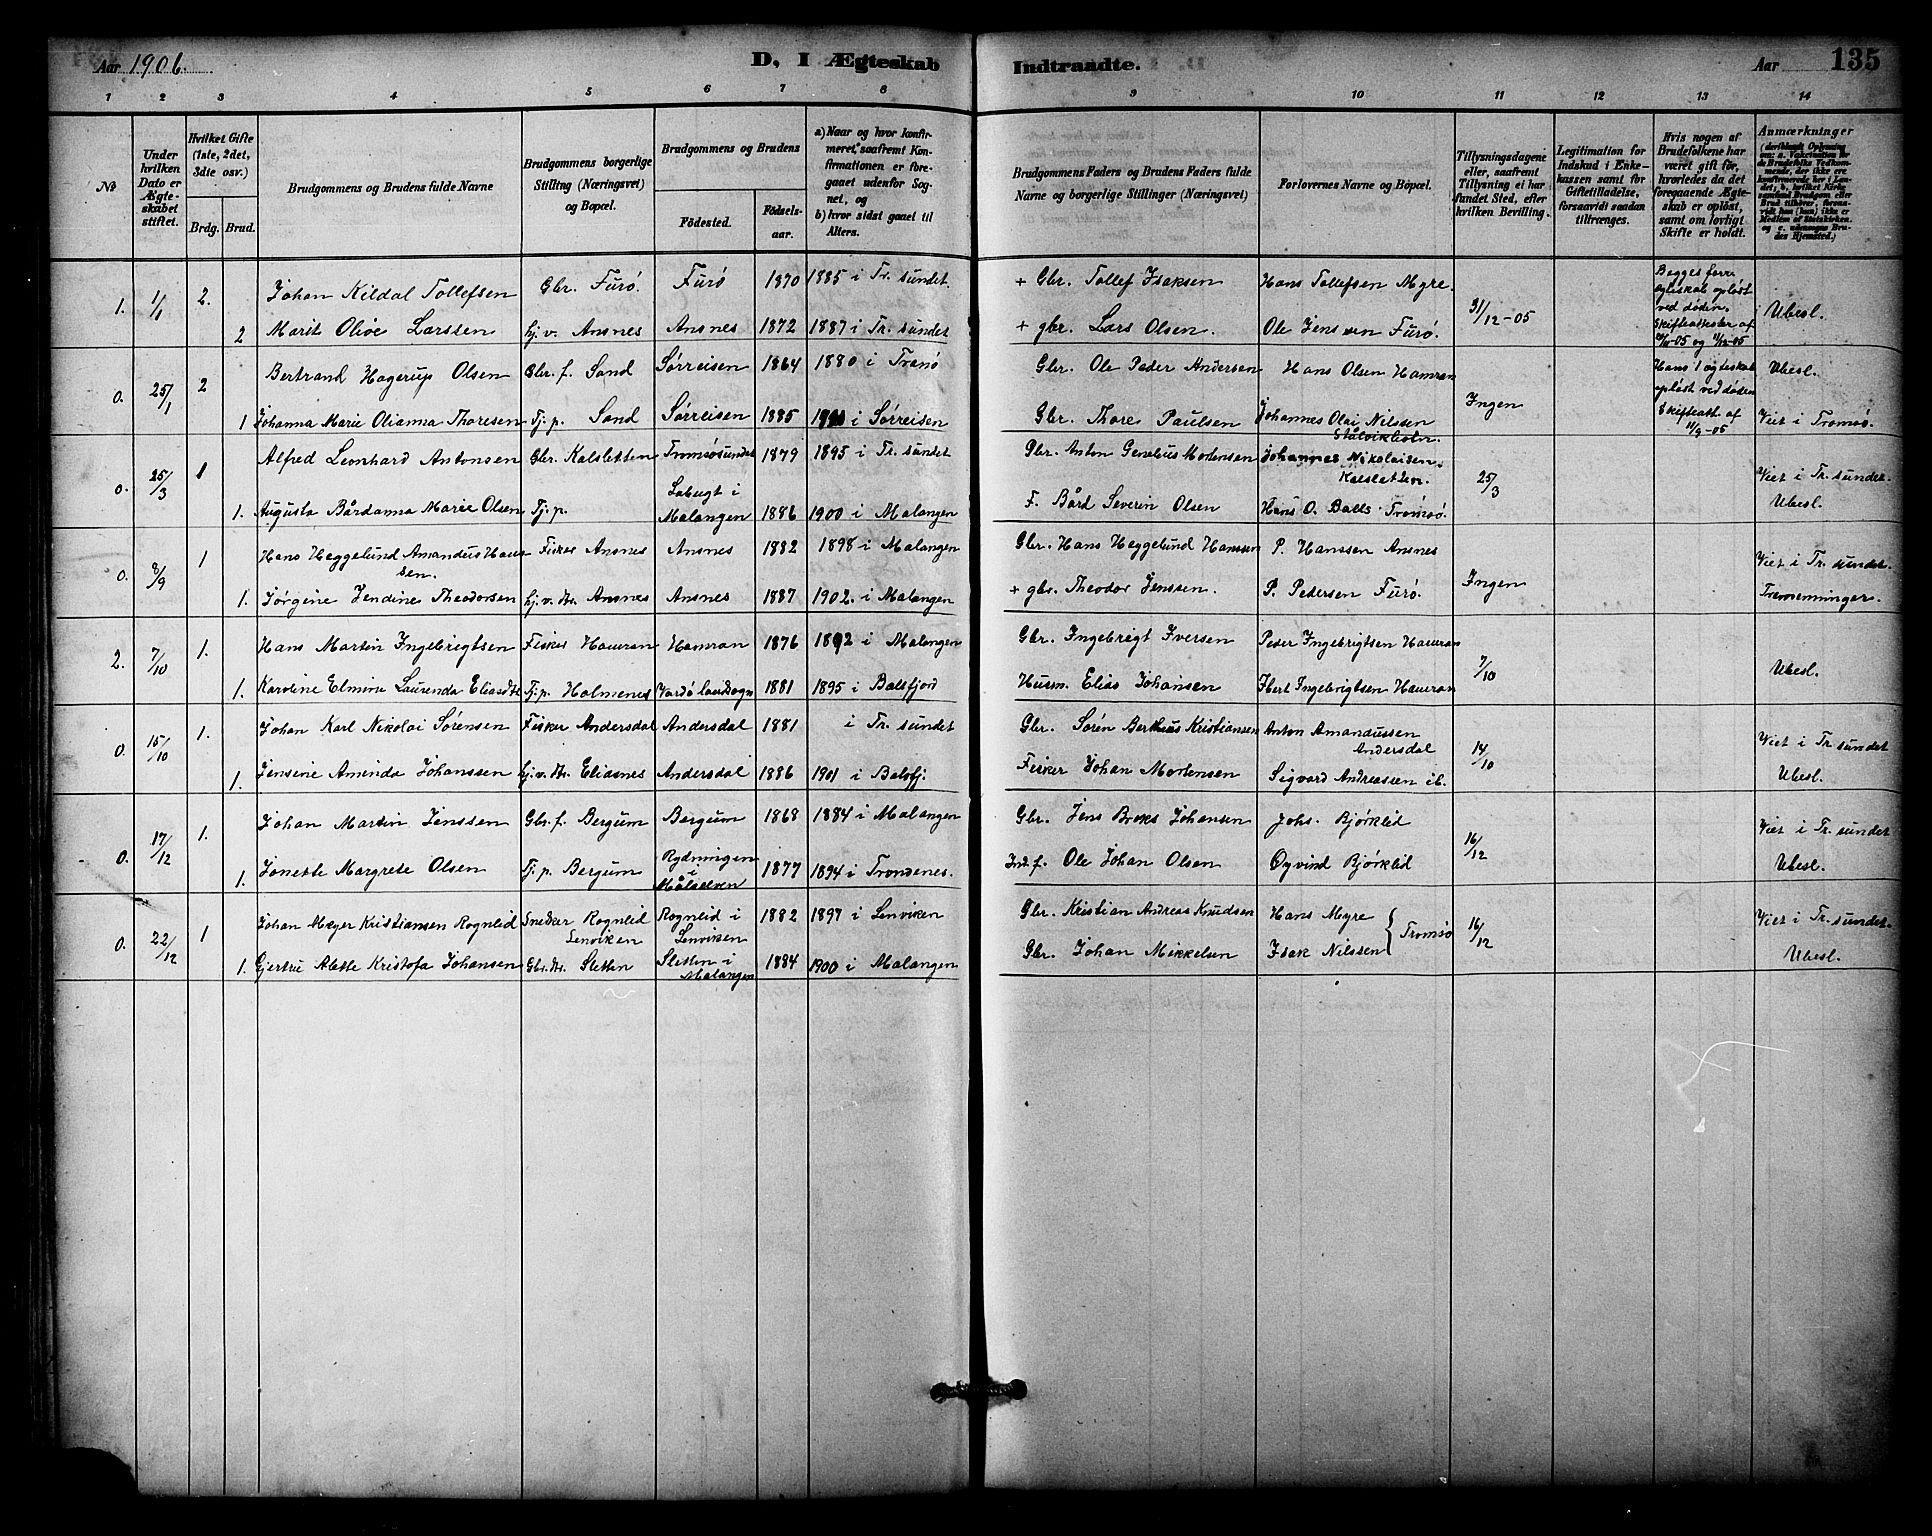 Aar 1906.
D, I Ægteskab Indtraadte.
Aar 135
1 2 3 4 5 6 7 8 9 10 11 12 13 14
No
Under hvilken Dato er Ægteskabet stiftet.
Hvilket Gifte (1ste, 2det, 3die osv.)
Brdg. Brud.
Brudgommens og Brudens fulde Navne
Brudgommens borgerlige Stilling (Næringsvei) og Bopæl.
Brudgommens og Brudens
Födested.
Födselsaar.
a) Naar og hvor konfirmeret, saafremt Konfirmationen er foregaaet udenfor Sognet, og
b) hvor sidst gaaet til Alters.
Brudgommens Faders og Brudens Faders fulde Navne og borgerlige Stillinger (Næringsvei)
Forlovernes Navne og Bopæl.
Tillysningsdagene eller, saafremt Tillysning ei har fundet Sted, efter hvilken Bevilling.
Legitimation for Indskud i Enkekassen samt for Giftetilladelse, forsaavidt saadan tiltrænges.
Hvis nogen af Brudefolkene har været gift før, hvorledes da det foregaaende Ægteskab er opløst, samt om lovligt Skifte er holdt.
Anmærkninger
1. 1/1 2. Johan Kildal Tollefsen Gbr. Furö. Furö 1870 1885 i Tr. sundet + Gbr. Tollef Isaksen Hans Tollefsen Myre. 31/12-05 Begges forr. egteskab opløst ved døden. Ubesl.
2 Marit Olive Larssen hj. v. Ansnes Ansnes 1872 1887 i Tr. sundet + gbr. Lars Olsen. Ole Jenssen Furö. Skifteattester af
0. 25/1 2 Bertrand Hagerup Olsen Gbr. f. Sand Sørreisen 1864 1880 i Tranö Gbr. Ole Peder Andersen Hans Olsen Hamran Ingen Hans 1 egteskab opløst ved døden Ubesl.
1 Johanna Marie Olianna Thoresen Tj. p. Sand Sørreisen 1885 i Sørreisen Gbr. Thore Paulsen Johannes Olai Nilssen Skifteatt. af 11/9-05 Viet i Tromsø.
0. 25/3 1 Alfred Leonhard Antonsen Gbr. Kalsletten Tromsøsundet 1879 1895 i Tr. sundet Gbr. Anton Mortensen Johannes Nikolaisen. Kalsletten. 25/3 Viet i Tr. sundet.
1. Augusta Bårdanna Marie Olsen Tj. p. i Malangen 1886 1900 i Malangen F. Bård Severin Olsen Hans O. Balls Tromsø. Ubesl.
0. 8/9 1 Hans Heggelund Amandus Hanssen. Fisker Ansnes Ansnes 1882 1898 i Malangen Gbr. Hans Heggelund Hanssen P. Hanssen Ansnes Ingen Viet i Tr. sundet.
1. Jörgine Jendine Theodorsen hj. v. dtr. Ansnes Ansnes 1887 1902. i Malangen + gbr. Theodor Jenssen. P. Pedersen Furö. Tremenninger.
2. 7/10 1. Hans Martin Ingebrigtsen Fisker Hamran Hamran 1876 1892 i Malangen Gbr. Ingebrigt Iversen Peder Ingebrigtsen Hamran 7/10 Ubesl.
1. Karoline Elmine Laurenda Eliasdtr. Tj. p. Holmenes Vardø landsogn 1881 1895 i Balsfjord Husm. Elias Johansen Ibert Ingebrigtsen Hamran
0. 15/10 1. Johan Karl Nikolai Sörensen Fisker Andersdal Andersdal 1881 i Tr. sundet Gbr. Sørén Berthius Kristiansen Anton Amandussen Andersdal 14/10 Viet i Tr. sundet
1. Jensine Aminda Johanssen hj. v. dtr. Eliasnes Andersdal 1886 1901 i Balsfj. Fisker Johan Mortensen Sigvard Andreassen ib. Ubesl.
0. 17/12 1. Johan Martin Jenssen Gbr. f. Bergum Bergum 1868 1884 i Malangen Gbr. Jens Broks Johansen Johs. Bjørklid 16/12 Viet i Tr. sundet
1. Jonette Margrete Olsen Tj. p. Bergum Rydningen i Målselven 1877 1894 i Trondenes. Ind. f. Ole Johan Olsen Øyvind Bjørklid Ubesl.
0. 22/12 1 Johan Meyer Kristiansen Rognlid Snedker Rognlid Lenviken Rognlid i Lenviken 1882 1897 i Lenviken Gbr. Kristian Andreas Knudsen Hans Myre Tromsø 16/12 Viet i Tr. sundet.
1. Gjertru Alette Kristofa Johansen Gbr. dtr. Sletten Sletten i Malangen 1884 1900 i Malangen Gbr. Johan Mikkelsen Isak Nilssen Ubesl.